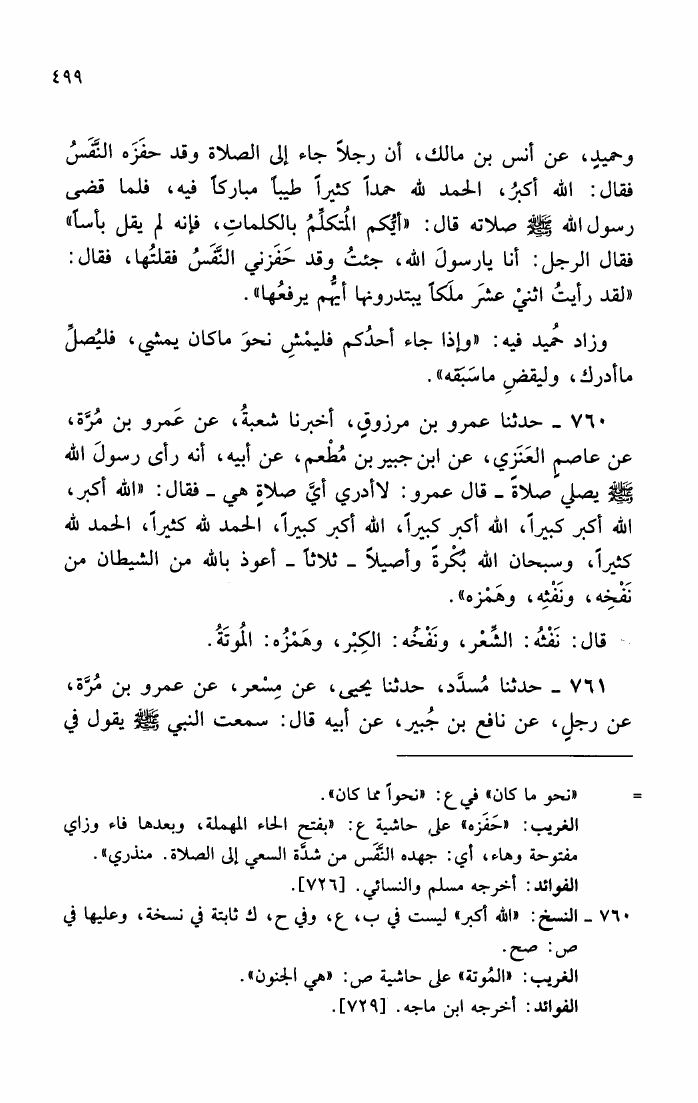 ٤٩٩
وحميدٍ، عن أنس بن مالك، أن رجلاً جاء إلى الصلاة وقد حفَزَه النَّفَسُ
فقال: الله أكبرُ، الحمد لله حمداً كثيراً طيباً مباركاً فيه، فلما قضى
رسول الله ﷺ صلاته قال: «أيُّكم المُتكلِّمُ بالكلماتِ، فإنه لم يقل بأساً»
فقال الرجل: أنا يارسولَ الله، جئتُ وقد حَفَزني النَّفَسُ فقلتُها، فقال:
«لقد رأيتُ اثنيْ عشَرَ ملَكاً يبتدرونها أيُّهم يرفعُها».
وزاد حُميد فيه: «وإذا جاء أحدُكم فليمْشِ نحوَ ماكان يمشي، فليُصلِّ
ماأدرك، وليقضِ ماسَبَقه».
٧٦٠ - حدثنا عمرو بن مرزوقٍ، أخبرنا شعبةُ، عن عَمرو بن مُرَّة،
عن عاصمٍ العَنَزي، عن ابن جبير بن مُطْعم، عن أبيه، أنه رأى رسولَ الله
ﷺ يصلي صلاةً - قال عمرو: لاأدري أيَّ صلاةٍ هي - فقال: «الله أكبر،
الله أكبر كبيراً، الله أكبر كبيراً، الله أكبر كبيراً، الحمد لله كثيراً، الحمد لله
كثيراً، وسبحان الله بُكْرةً وأصيلاً - ثلاثاً - أعوذ بالله من الشيطان من
نَفْخِه، ونَفْثِه، وهَمْزه».
قال: نَفْثُهُ: الشِّعْر، ونَفْخُه: الكِبْر، وهَمْزُه: المُوتَةُ.
٧٦١ - حدثنا مُسدَّد، حدثنا يحيى، عن مِسْعر، عن عمرو بن مُرَّة،
عن رجلٍ، عن نافع بن جُبير، عن أبيه قال: سمعت النبي ﷺ يقول في
= «نحو ما كان» في ع: «نحواً مما كان».
الغريب: «حَفَزه» على حاشية ع: «بفتح الحاء المهملة، وبعدها فاء وزاي
مفتوحة وهاء، أي: جهده النَّفَس من شدَّة السعي إلى الصلاة. منذري».
الفوائد: أخرجه مسلم والنسائي. [٧٢٦].
٧٦٠ - النسخ: «الله أكبر» ليست في ب، ع، وفي ح، ك ثابتة في نسخة، وعليها في
ص: صح.
الغريب: «المُوتة» على حاشية ص: «هي الجنون».
الفوائد: أخرجه ابن ماجه. [٧٢٩].